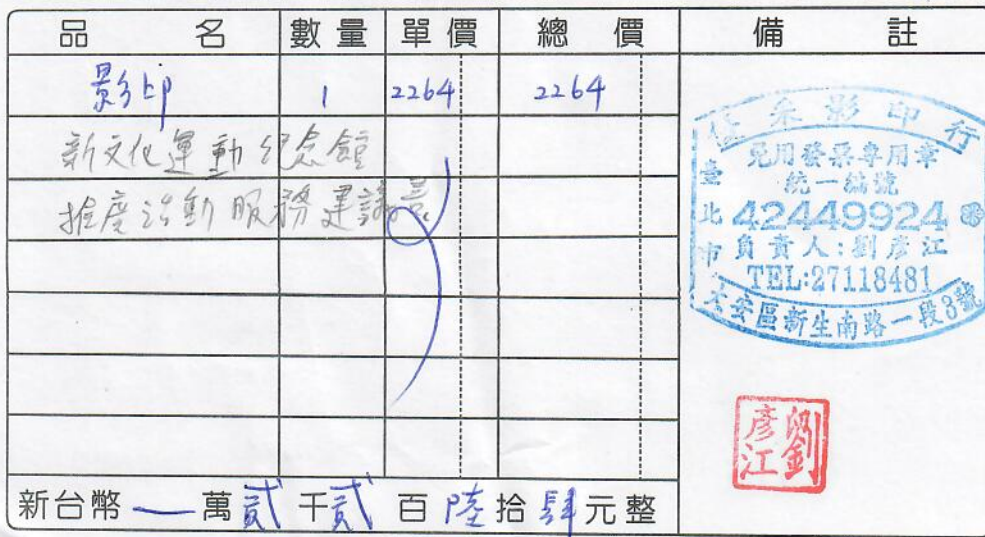 品 名 數量 單價 總 價 備 註
影印 1 2264 2264
新文化運動紀念館
推廣活動服務建議書
新台幣 — 萬貳千貳百陸拾肆元整
佳采影印行
免用發票專用章
統一編號
臺北市
42449924
負責人:劉彥江
TEL:27118481
大安區新生南路一段3號
劉彥江